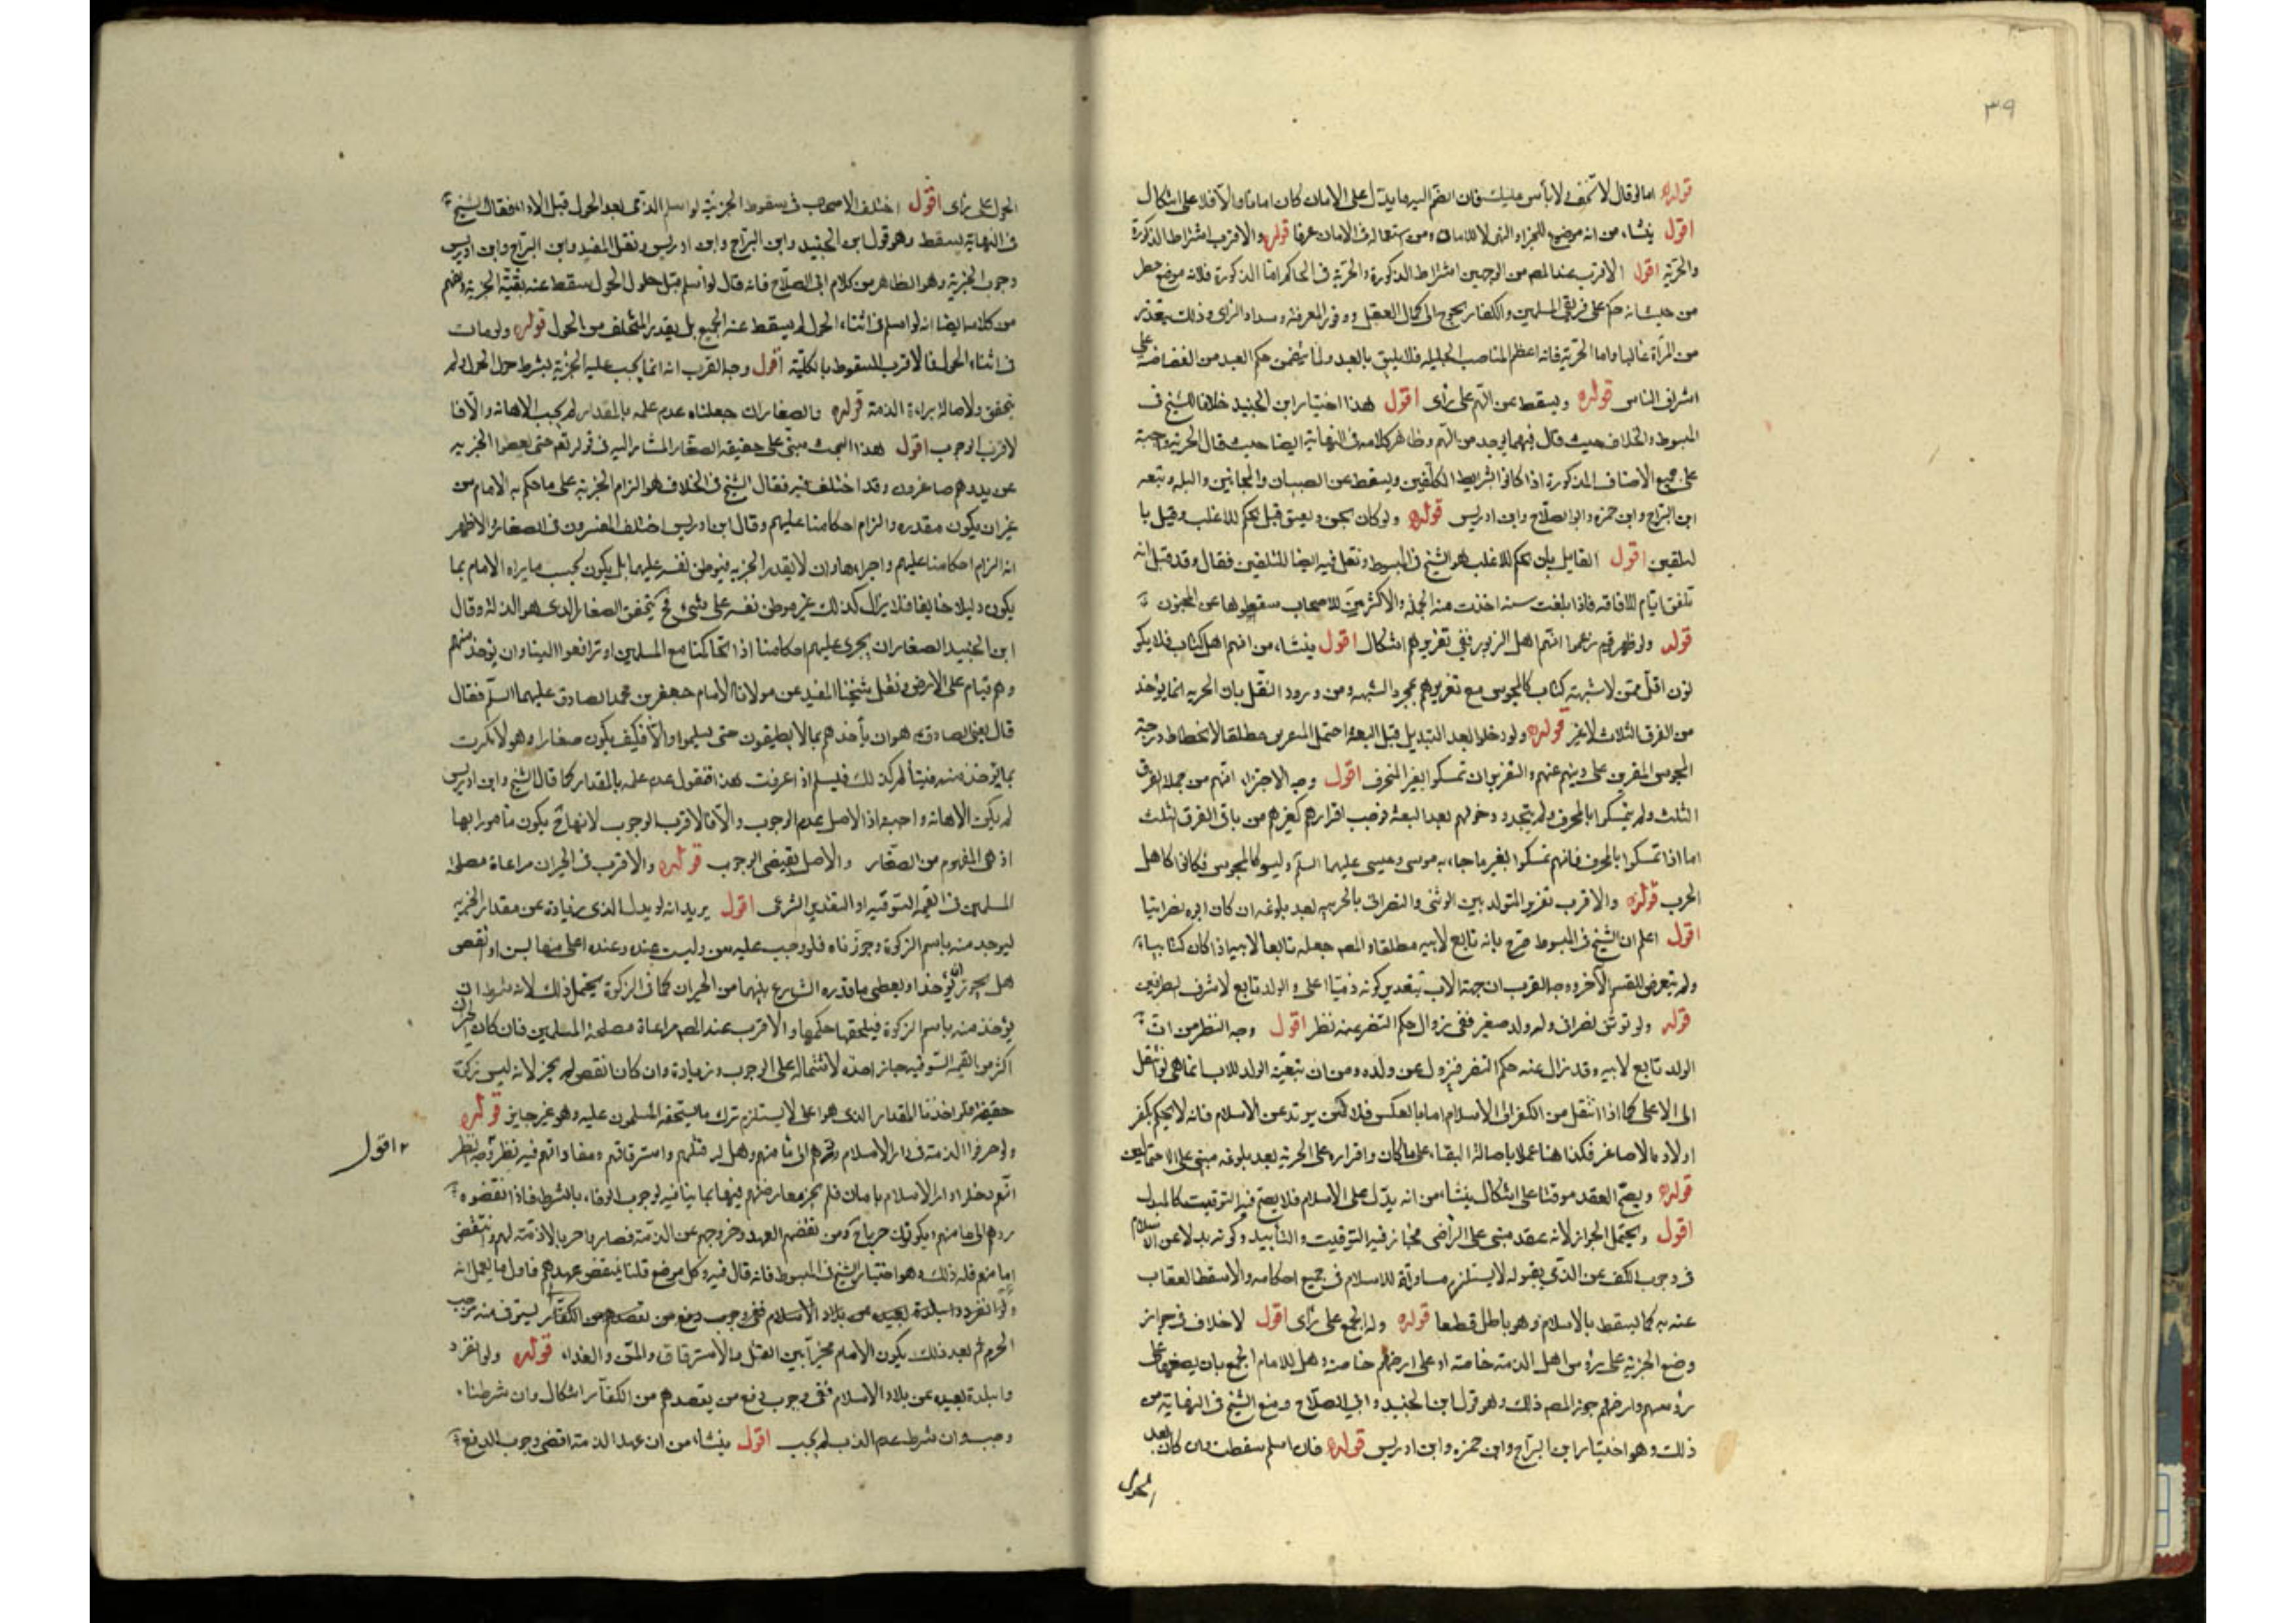 ٣٩
قوله اما لو قال لا تخف و لا بأس عليك فان انضم اليه ما يدل على الامان كان امانا والا فلا على اشكال
اقول ينشاء من انه موضوع للجزاء لا للامان ومن استعماله فى الامان عرفا قوله والاقرب اشتراط الذكورة
والحرية اقول الاقرب عند المص من الوجهين اشتراط الذكورة والحرية فى الحاكم اما الذكورة فلانه موضع خطر
من حيث انه حكم على فريقى المسلمين والكفار يحوج الى كمال العقل ووفور المعرفة وسداد الراى وذلك يتعذر
من المرأة غالبا واما الحرية فانه اعظم المناصب الجليله فلا يليق بالعبد ولما يتضمن حكم العبد من الغضاضة على
اشراف الناس قوله ويسقط عن الهم على راى اقول هذا اختيار ابن الجنيد خلافا للشيخ فى
المبسوط والخلاف حيث قال فيهما يوخذ من الهم وظاهر كلامه فى النهاية ايضا حيث قال الجزية واجبة
على جميع الاصناف المذكورة اذا كانوا بشرايط المكلفين ويسقط عن الصبيان والمجانين والبله وتبعه
ابن البراج وابن حمزه وابو الصلاح وابن ادريس قوله ولو كان يجن ويفيق قيل يحكم للاغلب وقيل با
لتلفيق اقول القايل بان الحكم للاغلب هو الشيخ فى المبسوط ونقل فيه ايضا التلفيق فقال وقد قيل انه
تلفق ايام الافاقه فاذا بلغت سنه اخذت منه الجزية والاكثر من الاصحاب سقوطها عن المجنون
قوله ولو ظهر قوم زعموا انهم اهل الزبور ففى تقريرهم اشكال اقول ينشاء من انهم اهل كتاب فلا يكو
نون اقل ممن لا شبهة كتاب كالمجوس مع تقريرهم بمجرد الشبهه ومن ورود النقل بان الجزيه انما يوخذ
من الفرق الثلاث لا غير قوله ولو دخلوا بعد التبديل قبل البعثه احتمل التقرير مطلقا لانحطاط درجة
المجوس المقرين على دينهم عنهم والتقرير ان تمسكوا بغير المحرف اقول وجه الاجتزاء انهم من جملة الفرق
الثلث ولم يتمسكوا بالمحرف ولم يتجدد دخولهم بعد البعثه فوجب اقرارهم كغيرهم من باقى الفرق الثلث
اما اذا تمسكوا بالمحرف فانهم تمسكوا بغير ما جاء به موسى وعيسى عليهما السلم وليسوا كالمجوس فكانوا كاهل
الحرب قوله والاقرب تقرير المتولد بين الوثنى والنصرانى بالجزيه بعد بلوغه ان كان ابوه نصرانيا
اقول اعلم ان الشيخ فى المبسوط صرح بانه تابع لابيه مطلقا والمص جعله تابعا لابيه اذا كان كتابيا
ولم يتعرض للقسم الآخر ووجه القرب ان جهة الاب بتقدير كونه ذميا اعلى والولد تابع لاشرف الطرفين
قوله ولو توثن نصرانى وله ولد صغير ففى زوال حكم التنصر عنه نظر اقول وجه النظر من ان
الولد تابع لابيه وقد زال عنه حكم التنصر فيزول عن ولده ومن ان تبعية الولد للاب انما هى لو انتقل
الى الاعلى كما اذا انتقل من الكفر الى الاسلام اما بالعكس فلا كمن يرتد عن الاسلام فانه لا يحكم بكفر
اولاده الاصاغر فكذا هنا عملا باصالة البقاء على ما كان واقراره على الجزية بعد بلوغه مبنى على الاحتمالين
قوله ويصح العقد موقتا على اشكال ينشاء من انه بدل على الاسلام فلا يصح فيه التوقيت كالمبدل
اقول ويحتمل الجواز لانه عقد مبنى على التراضى فجاز فيه التوقيت والتأبيد وكونه بدلا عن الاسلام
فى وجوب الكف عن الذى يقوله لا يستلزم مساواته للاسلام فى جميع احكامه والا سقط العقاب
عنه به كما يسقط بالاسلام وهو باطل قطعا قوله وله الجمع على راى اقول لا خلاف فى جواز
وضع الجزية على رؤس اهل الذمة خاصة او على ارضهم خاصة وهل للامام الجمع بان يضعها على
رؤسهم وارضهم جوز المص ذلك وهو قول ابن الجنيد وابى الصلاح ومنع الشيخ فى النهاية من
ذلك وهو اختيار ابن البراج وابن حمزه وابن ادريس قوله فان اسلم سقطت وان كان بعد
الحول
الحول على راى اقول اختلف الاصحاب فى سقوط الجزية لو اسلم الذمى بعد الحول قبل الاداء فقال الشيخ
فى النهاية يسقط وهو قول ابن الجنيد وابن البراج وابن ادريس ونقل المفيد وابن البراج وابن ادريس
وجوب الجزية وهو الظاهر من كلام ابى الصلاح فانه قال لو اسلم قبل حلول الحول سقط عنه بقية الجزية ويفهم
من كلامه ايضا انه لو اسلم فى اثناء الحول لم يسقط عنه الجميع بل بقدر المتخلف من الحول قوله ولو مات
فى اثناء الحول فالاقرب السقوط بالكلية اقول وجه القرب انه انما يجب عليه الجزية بشرط حول الحول ولم
يتحقق ولاصالة براءة الذمة قوله والصغار ان جعلناه عدم علمه بالمقدار لم يجب الاهانه والا فا
لاقرب الوجوب اقول هذا البحث مبنى على حقيقه الصغار المشار اليه فى قوله تعم حتى يعطوا الجزيه
عن يد وهم صاغرون وقد اختلف فيه فقال الشيخ فى الخلاف هو الزام الجزية على ما حكم به الامام من
غير ان يكون مقدره والزام احكامنا عليهم وقال ابن ادريس اختلف المفسرون فى الصغار والاظهر
انه الزام احكامنا عليهم واجراءها وان لا يقدر الجزيه فيوطن نفسه عليها بل يكون بحسب ما يراه الامام بما
يكون ذليلا خايفا فلا يزال كذلك غير موطن نفسه على شىء فح يتحقق الصغار الذى هو الذلة وقال
ابن الجنيد الصغار ان يجرى عليهم احكامنا اذا تحاكمنا مع المسلمين او ترافعوا الينا وان يوخذ منهم
وهم قيام على الارض ونقل شيخنا المفيد عن مولانا الامام جعفر بن محمد الصادق عليهما السلم فقال
قال يعنى الصادق هو ان يأخذهم بما لا يطيقون حتى يسلموا والا فكيف يكون صغارا وهو لا يكترث
بما يؤخذ منه فيتألم لذلك فيسلم اذا عرفت هذا فنقول عدم علمه بالمقدار كما قال الشيخ وابن ادريس
لم يكن الاهانة واجبه اذ الاصل عدم الوجوب والا فالاقرب الوجوب لانها ح يكون مأمورا بها
اذ هى المفهوم من الصغار والاصل يقتضى الوجوب قوله والاقرب فى الجبران مراعاة مصلحة
المسلمين فى القيمة السوقيه او التقدير الشرعى اقول يريد انه لو بذل الذمى زيادة عن مقدار الجزيه
ليوخذ منه باسم الزكوة وجوزناه فلو وجب عليه سن وليست عنده وعنده اعلى منها بسن او انقص
هل يجوز ان يؤخذ او يعطى ما قدره الشارع بينهما من الجبران كما فى الزكوة يحتمل ذلك لانه شرط ان
يؤخذ منه باسم الزكوة فيلحقها حكمها والاقرب عند المص مراعاة مصلحة المسلمين فان كان الجبران
اكثر من القيمه السوقيه جاز اخذه لاشتماله على الوجوب وزيادة وان كان انقص لم يجز لانه ليس بزكوة
حقيقة فلو اخذنا المقدار الذى هو اعلى لا يستلزم ترك ما يستحقه المسلمون عليه وهو غير جايز قوله
ولو خرقوا الذمة فى دار الاسلام ردهم الى مأمنهم وهل له قتلهم واسترقاقهم ومفاداتهم فيه نظر وجه النظر
٢ اقول
انهم دخلوا دار الاسلام بامان فلم يجز معارضتهم فيها بما ينافيه لوجوب الوفاء بالشرط فاذا نقضوه
ردهم الى مأمنهم ويكونون حربا ح ومن نقضهم العهد وخروجهم عن الذمة فصاروا حربا لا ذمة لهم وينتقض
امانهم فله ذلك وهو اختيار الشيخ فى المبسوط فانه قال فيه وكل موضع قلنا ينتقض عهدهم فاول ما يعمل انه
يستوفى منه موجب
الجرم ثم بعد ذلك يكون الامام مخيرا بين القتل والاسترقاق والمن والفداء قوله ولو انفرد
وا ببلدة بعيده عن بلاد الاسلام ففى وجوب دفع من يقصدهم من الكفار اشكال وان شرطناه
وجب وان شرط عدم الذب لم يجب اقول ينشاء من ان عهد الذمة اقتضى وجوب الدفع